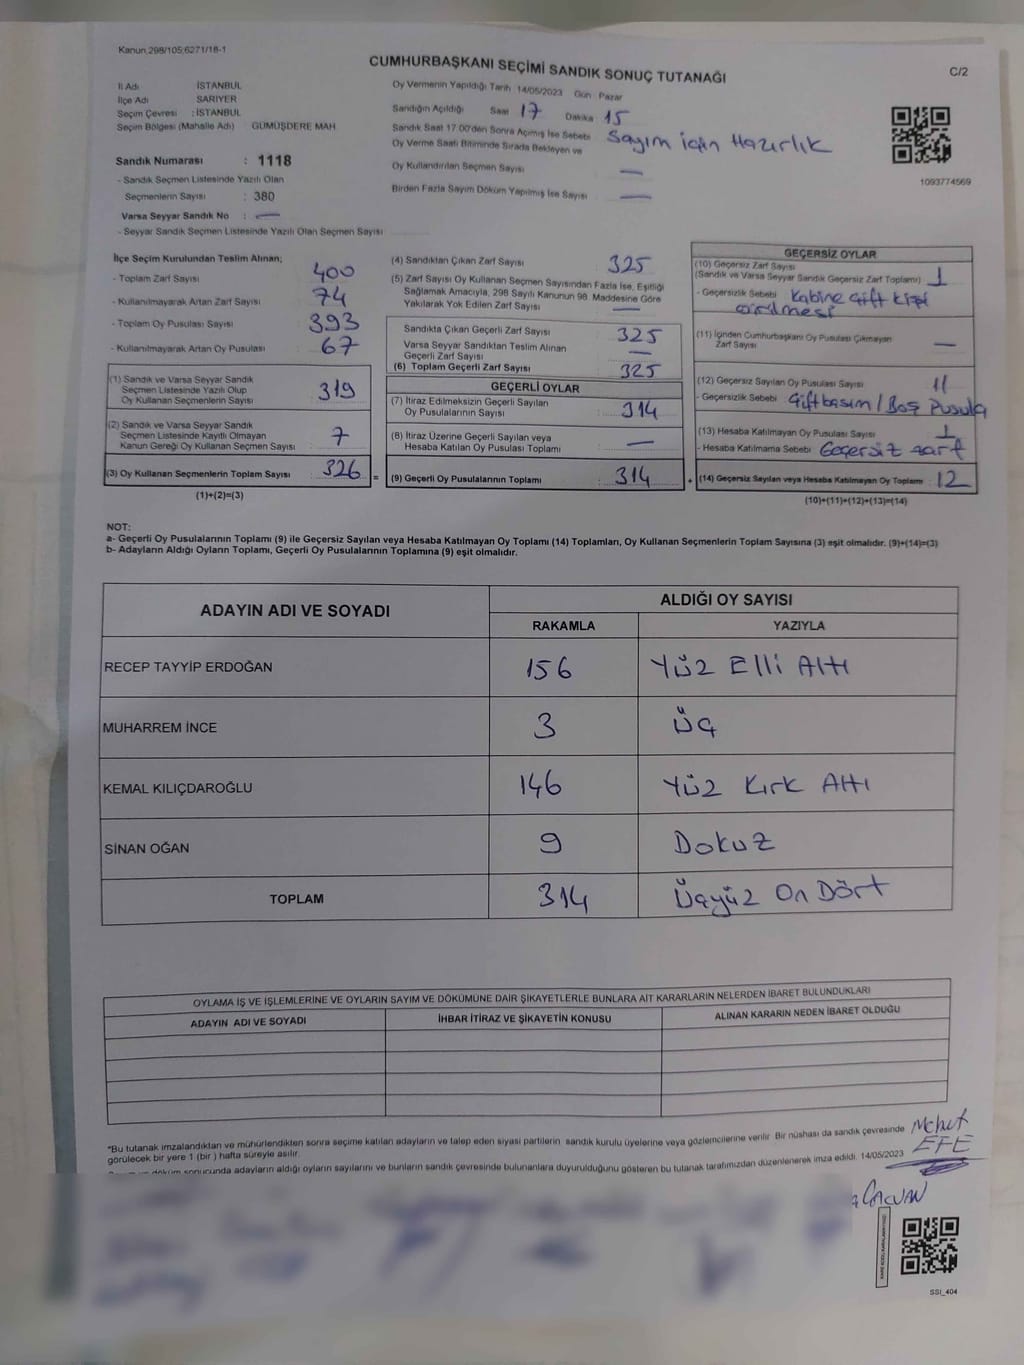 Kanun,298/105;6271/18-1
CUMHURBAŞKANI SEÇİMİ SANDIK SONUÇ TUTANAĞI
C/2
İl Adı İSTANBUL
İlçe Adı SARIYER
Seçim Çevresi : İSTANBUL
Seçim Bölgesi (Mahalle Adı) GÜMÜŞDERE MAH
Sandık Numarası : 1118
- Sandık Seçmen Listesinde Yazılı Olan
Seçmenlerin Sayısı : 380
Varsa Seyyar Sandık No : —
- Seyyar Sandık Seçmen Listesinde Yazılı Olan Seçmen Sayısı
Oy Vermenin Yapıldığı Tarih 14/05/2023 Gün Pazar
Sandığın Açıldığı Saat 17 Dakika 15
Sandık Saat 17.00'den Sonra Açımış İse Sebebi Sayım için Hazırlık
Oy Verme Saati Bitiminde Sırada Bekleyen ve
Oy Kullandırılan Seçmen Sayısı —
Birden Fazla Sayım Döküm Yapılmış İse Sayısı —
1093774569
İlçe Seçim Kurulundan Teslim Alınan;
- Toplam Zarf Sayısı 400
- Kullanılmayarak Artan Zarf Sayısı 74
- Toplam Oy Pusulası Sayısı 393
- Kullanılmayarak Artan Oy Pusulası 67
(1) Sandık ve Varsa Seyyar Sandık
Seçmen Listesinde Yazılı Olup
Oy Kullanan Seçmenlerin Sayısı 319
(2) Sandık ve Varsa Seyyar Sandık
Seçmen Listesinde Kayıtlı Olmayan
Kanun Gereği Oy Kullanan Seçmen Sayısı 7
(3) Oy Kullanan Seçmenlerin Toplam Sayısı 326
(1)+(2)=(3)
(4) Sandıktan Çıkan Zarf Sayısı 325
(5) Zarf Sayısı Oy Kullanan Seçmen Sayısından Fazla İse, Eşitliği
Sağlamak Amacıyla, 298 Sayılı Kanunun 98. Maddesine Göre
Yakılarak Yok Edilen Zarf Sayısı —
Sandıkta Çıkan Geçerli Zarf Sayısı 325
Varsa Seyyar Sandıktan Teslim Alınan
Geçerli Zarf Sayısı —
(6) Toplam Geçerli Zarf Sayısı 325
GEÇERLİ OYLAR
(7) İtiraz Edilmeksizin Geçerli Sayılan
Oy Pusulalarının Sayısı 314
(8) İtiraz Üzerine Geçerli Sayılan veya
Hesaba Katılan Oy Pusulası Toplamı —
= (9) Geçerli Oy Pusulalarının Toplamı : 314
GEÇERSİZ OYLAR
(10) Geçersiz Zarf Sayısı
(Sandık ve Varsa Seyyar Sandık Geçersiz Zarf Toplamı) : 1
- Geçersizlik Sebebi Kabine çift kişi
girilmesi
(11) İçinden Cumhurbaşkanı Oy Pusulası Çıkmayan
Zarf Sayısı —
(12) Geçersiz Sayılan Oy Pusulası Sayısı 11
- Geçersizlik Sebebi Çift basım / Boş Pusula
(13) Hesaba Katılmayan Oy Pusulası Sayısı 1
- Hesaba Katılmama Sebebi Geçersiz zarf
+ (14) Geçersiz Sayılan veya Hesaba Katılmayan Oy Toplamı : 12
(10)+(11)+(12)+(13)=(14)
NOT:
a- Geçerli Oy Pusulalarının Toplamı (9) ile Geçersiz Sayılan veya Hesaba Katılmayan Oy Toplamı (14) Toplamları, Oy Kullanan Seçmenlerin Toplam Sayısına (3) eşit olmalıdır. (9)+(14)=(3)
b- Adayların Aldığı Oyların Toplamı, Geçerli Oy Pusulalarının Toplamına (9) eşit olmalıdır.
ADAYIN ADI VE SOYADI ALDIĞI OY SAYISI
RAKAMLA YAZIYLA
RECEP TAYYİP ERDOĞAN 156 Yüz Elli Altı
MUHARREM İNCE 3 Üç
KEMAL KILIÇDAROĞLU 146 Yüz Kırk Altı
SİNAN OĞAN 9 Dokuz
TOPLAM 314 Üçyüz On Dört
OYLAMA İŞ VE İŞLEMLERİNE VE OYLARIN SAYIM VE DÖKÜMÜNE DAİR ŞİKAYETLERLE BUNLARA AİT KARARLARIN NELERDEN İBARET BULUNDUKLARI
ADAYIN ADI VE SOYADI İHBAR İTİRAZ VE ŞİKAYETİN KONUSU ALINAN KARARIN NEDEN İBARET OLDUĞU
*Bu tutanak imzalandıktan ve mühürlendikten sonra seçime katılan adayların ve talep eden siyasi partilerin sandık kurulu üyelerine veya gözlemcilerine verilir. Bir nüshası da sandık çevresinde
görülecek bir yere 1 (bir) hafta süreyle asılır.
döküm sonucunda adayların aldığı oyların sayılarını ve bunların sandık çevresinde bulunanlara duyurulduğunu gösteren bu tutanak tarafımızdan düzenlenerek imza edildi. 14/05/2023
Mehmet
EFE
SSI_404